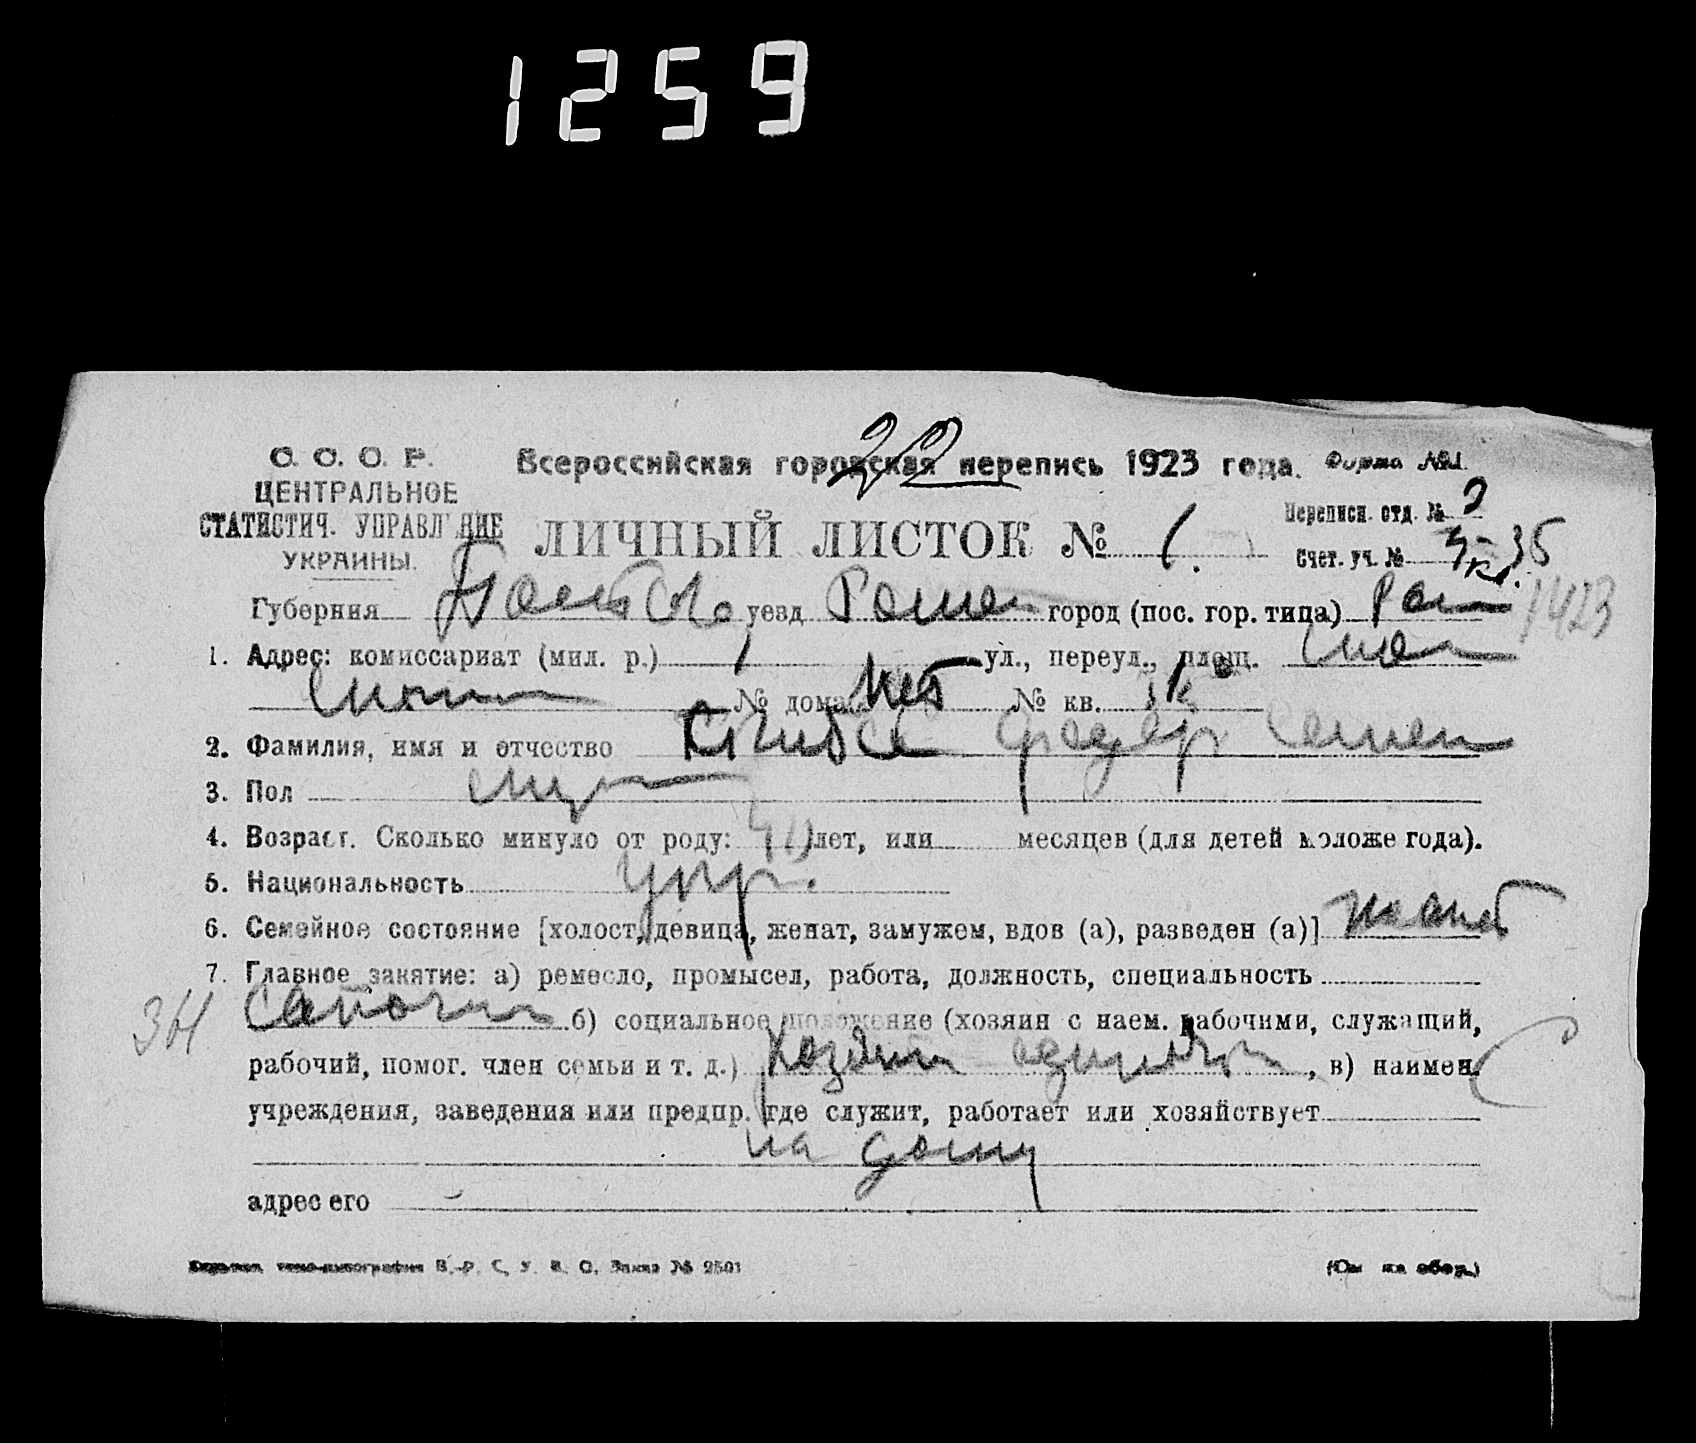 1259
С. С. С. Р.
ЦЕНТРАЛЬНОЕ
СТАТИСТИЧ. УПРАВЛ НИЕ
УКРАИНЫ.
22
Всероссийская городская перепись 1923 года.
Форма №1.
ЛИЧНЫЙ ЛИСТОК № 1.
Переписн. отд. №
Счет. уч. № 35
Губерния уезд Ромен город (пос. гор. типа) Ром
1423
1. Адрес: комиссариат (мил. р.) ул., переул., площ.
№ дома нет № кв.
2. Фамилия, имя и отчество Федор Семен
3. Пол муж
4. Возраст. Сколько минуло от роду: 40 лет, или месяцев (для детей моложе года).
5. Национальность укр.
6. Семейное состояние [холост, девица, женат, замужем, вдов (а), разведен (а)] женат
7. Главное занятие: а) ремесло, промысел, работа, должность, специальность
сапожн б) социальное положение (хозяин с наем. рабочими, служащий,
рабочий, помог. член семьи и т. д.) хозяин одиночка, в) наимен.
учреждения, заведения или предпр. где служит, работает или хозяйствует
на дому
адрес его
В.-Р. С. У. В. О. Заказ № 2501
(См на обор.)